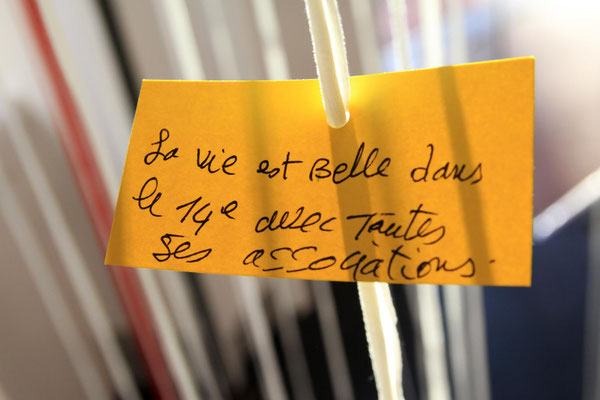 La vie est Belle dans
le 14e avec Toutes
ses associations.